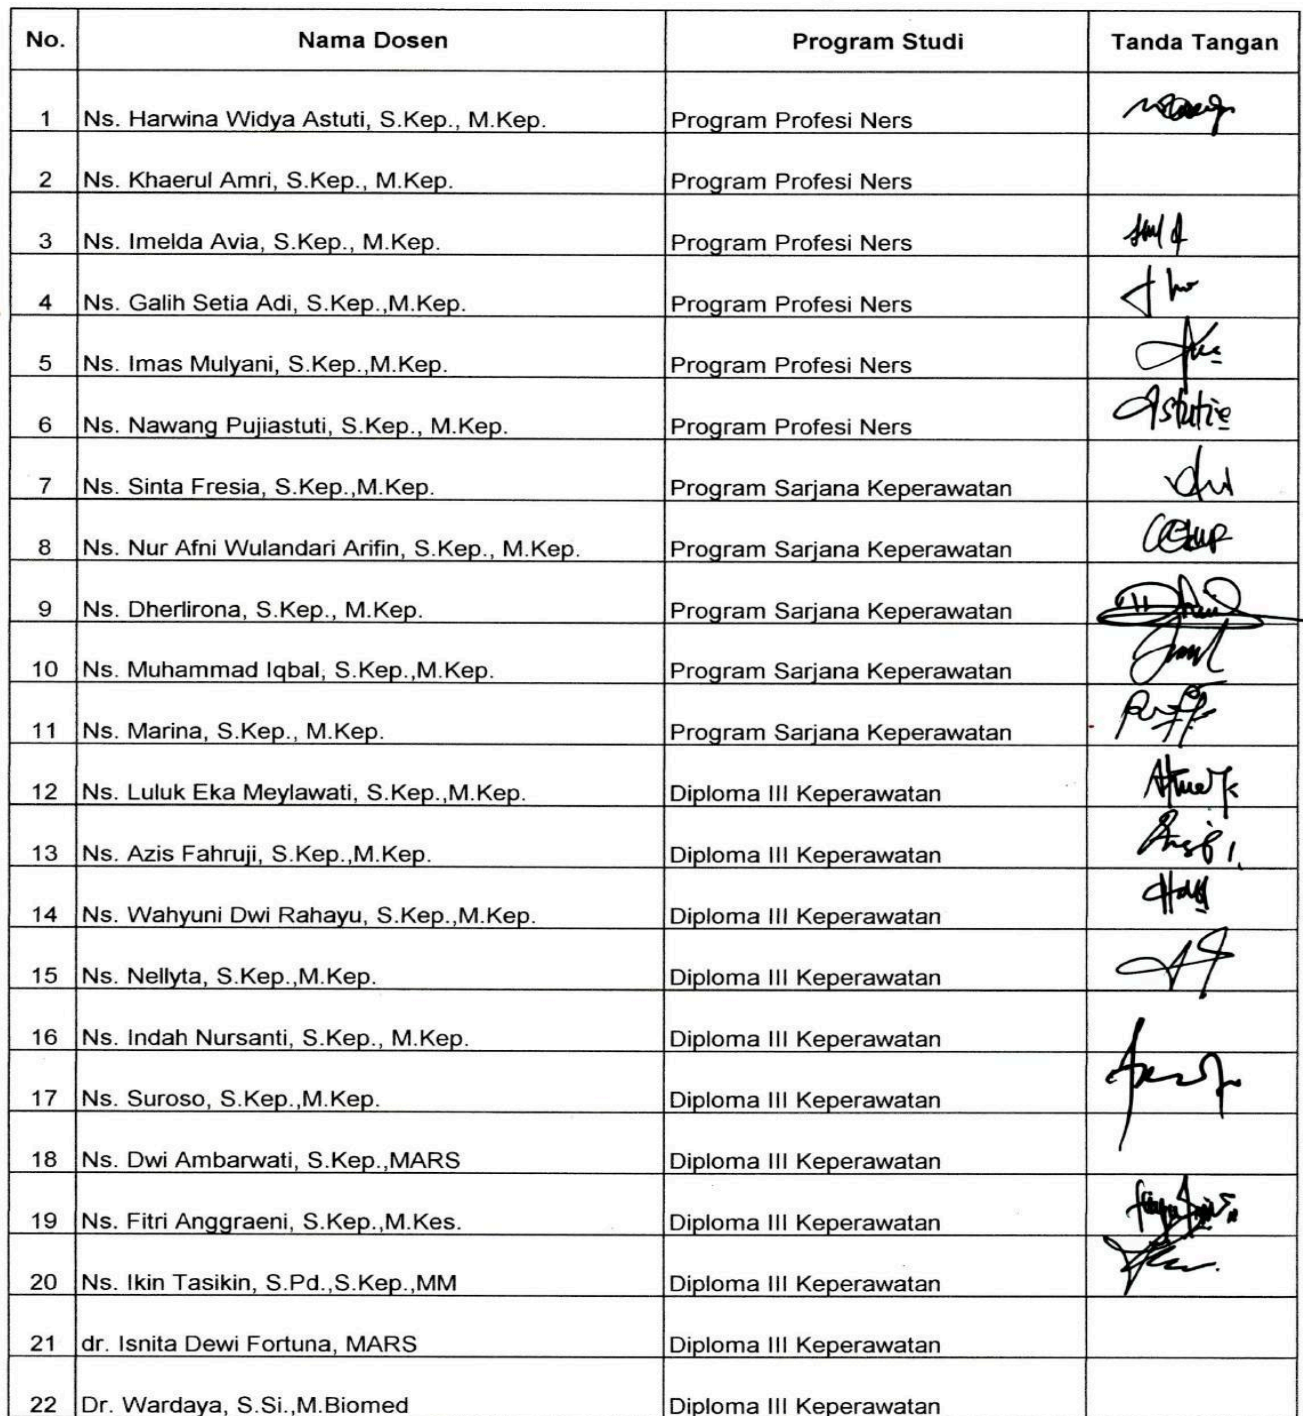 No. Nama Dosen Program Studi Tanda Tangan
1 Ns. Harwina Widya Astuti, S.Kep., M.Kep. Program Profesi Ners
2 Ns. Khaerul Amri, S.Kep., M.Kep. Program Profesi Ners
3 Ns. Imelda Avia, S.Kep., M.Kep. Program Profesi Ners
4 Ns. Galih Setia Adi, S.Kep.,M.Kep. Program Profesi Ners
5 Ns. Imas Mulyani, S.Kep.,M.Kep. Program Profesi Ners
6 Ns. Nawang Pujiastuti, S.Kep., M.Kep. Program Profesi Ners Astutie
7 Ns. Sinta Fresia, S.Kep.,M.Kep. Program Sarjana Keperawatan
8 Ns. Nur Afni Wulandari Arifin, S.Kep., M.Kep. Program Sarjana Keperawatan
9 Ns. Dherlirona, S.Kep., M.Kep. Program Sarjana Keperawatan
10 Ns. Muhammad Iqbal, S.Kep.,M.Kep. Program Sarjana Keperawatan
11 Ns. Marina, S.Kep., M.Kep. Program Sarjana Keperawatan
12 Ns. Luluk Eka Meylawati, S.Kep.,M.Kep. Diploma III Keperawatan
13 Ns. Azis Fahruji, S.Kep.,M.Kep. Diploma III Keperawatan
14 Ns. Wahyuni Dwi Rahayu, S.Kep.,M.Kep. Diploma III Keperawatan
15 Ns. Nellyta, S.Kep.,M.Kep. Diploma III Keperawatan
16 Ns. Indah Nursanti, S.Kep., M.Kep. Diploma III Keperawatan
17 Ns. Suroso, S.Kep.,M.Kep. Diploma III Keperawatan
18 Ns. Dwi Ambarwati, S.Kep.,MARS Diploma III Keperawatan
19 Ns. Fitri Anggraeni, S.Kep.,M.Kes. Diploma III Keperawatan
20 Ns. Ikin Tasikin, S.Pd.,S.Kep.,MM Diploma III Keperawatan
21 dr. Isnita Dewi Fortuna, MARS Diploma III Keperawatan
22 Dr. Wardaya, S.Si.,M.Biomed Diploma III Keperawatan